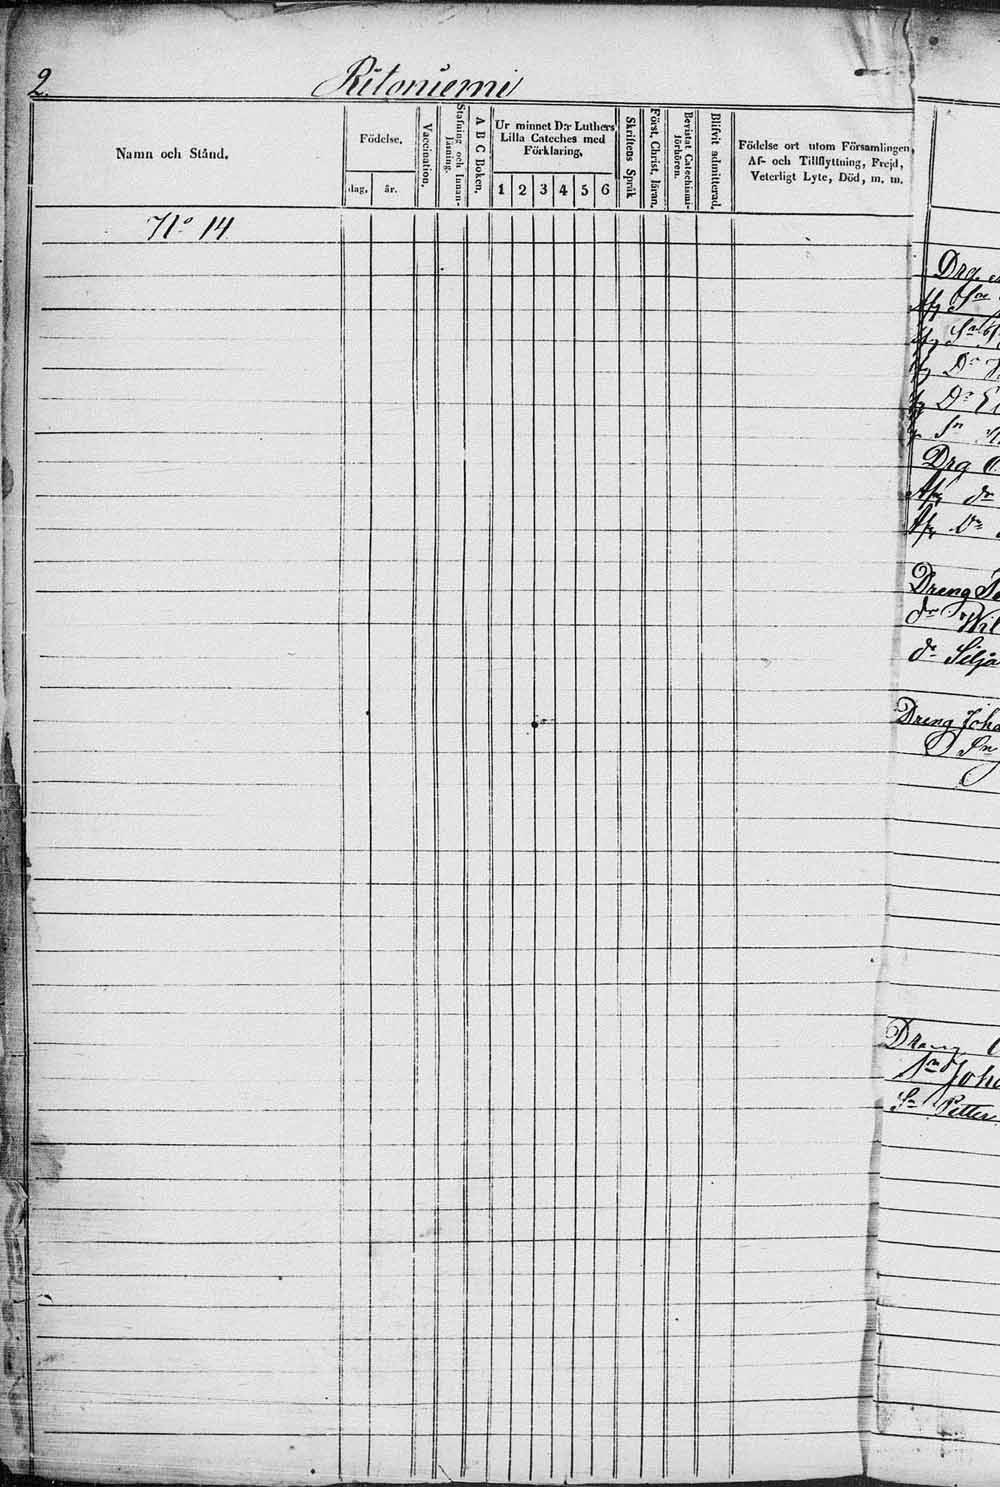 2.
Ritoniemi
Namn och Stånd.
Födelse.
dag.
år.
Vaccination.
Stafning och Innan-
läsning.
A B C Boken.
Ur minnet D:r Luthers
Lilla Cateches med
Förklaring,
1 2 3 4 5 6
Skriftens Språk
Först. Christ. läran.
Bevistat Catechismi-
förhören.
Blifvit admitterad.
Födelse ort utom Församlingen,
Af- och Tillflyttning, Frejd,
Veterligt Lyte, Död, m. m.
No 14
Drg.
Afg Sn
Sn
Do
Do
Sn
Drg
Afg dr
Afg Dr
Dreng
dr Wil
dr Silja
Dreng Joha
Sn
Dreng
Sn Joha
Sn Petter